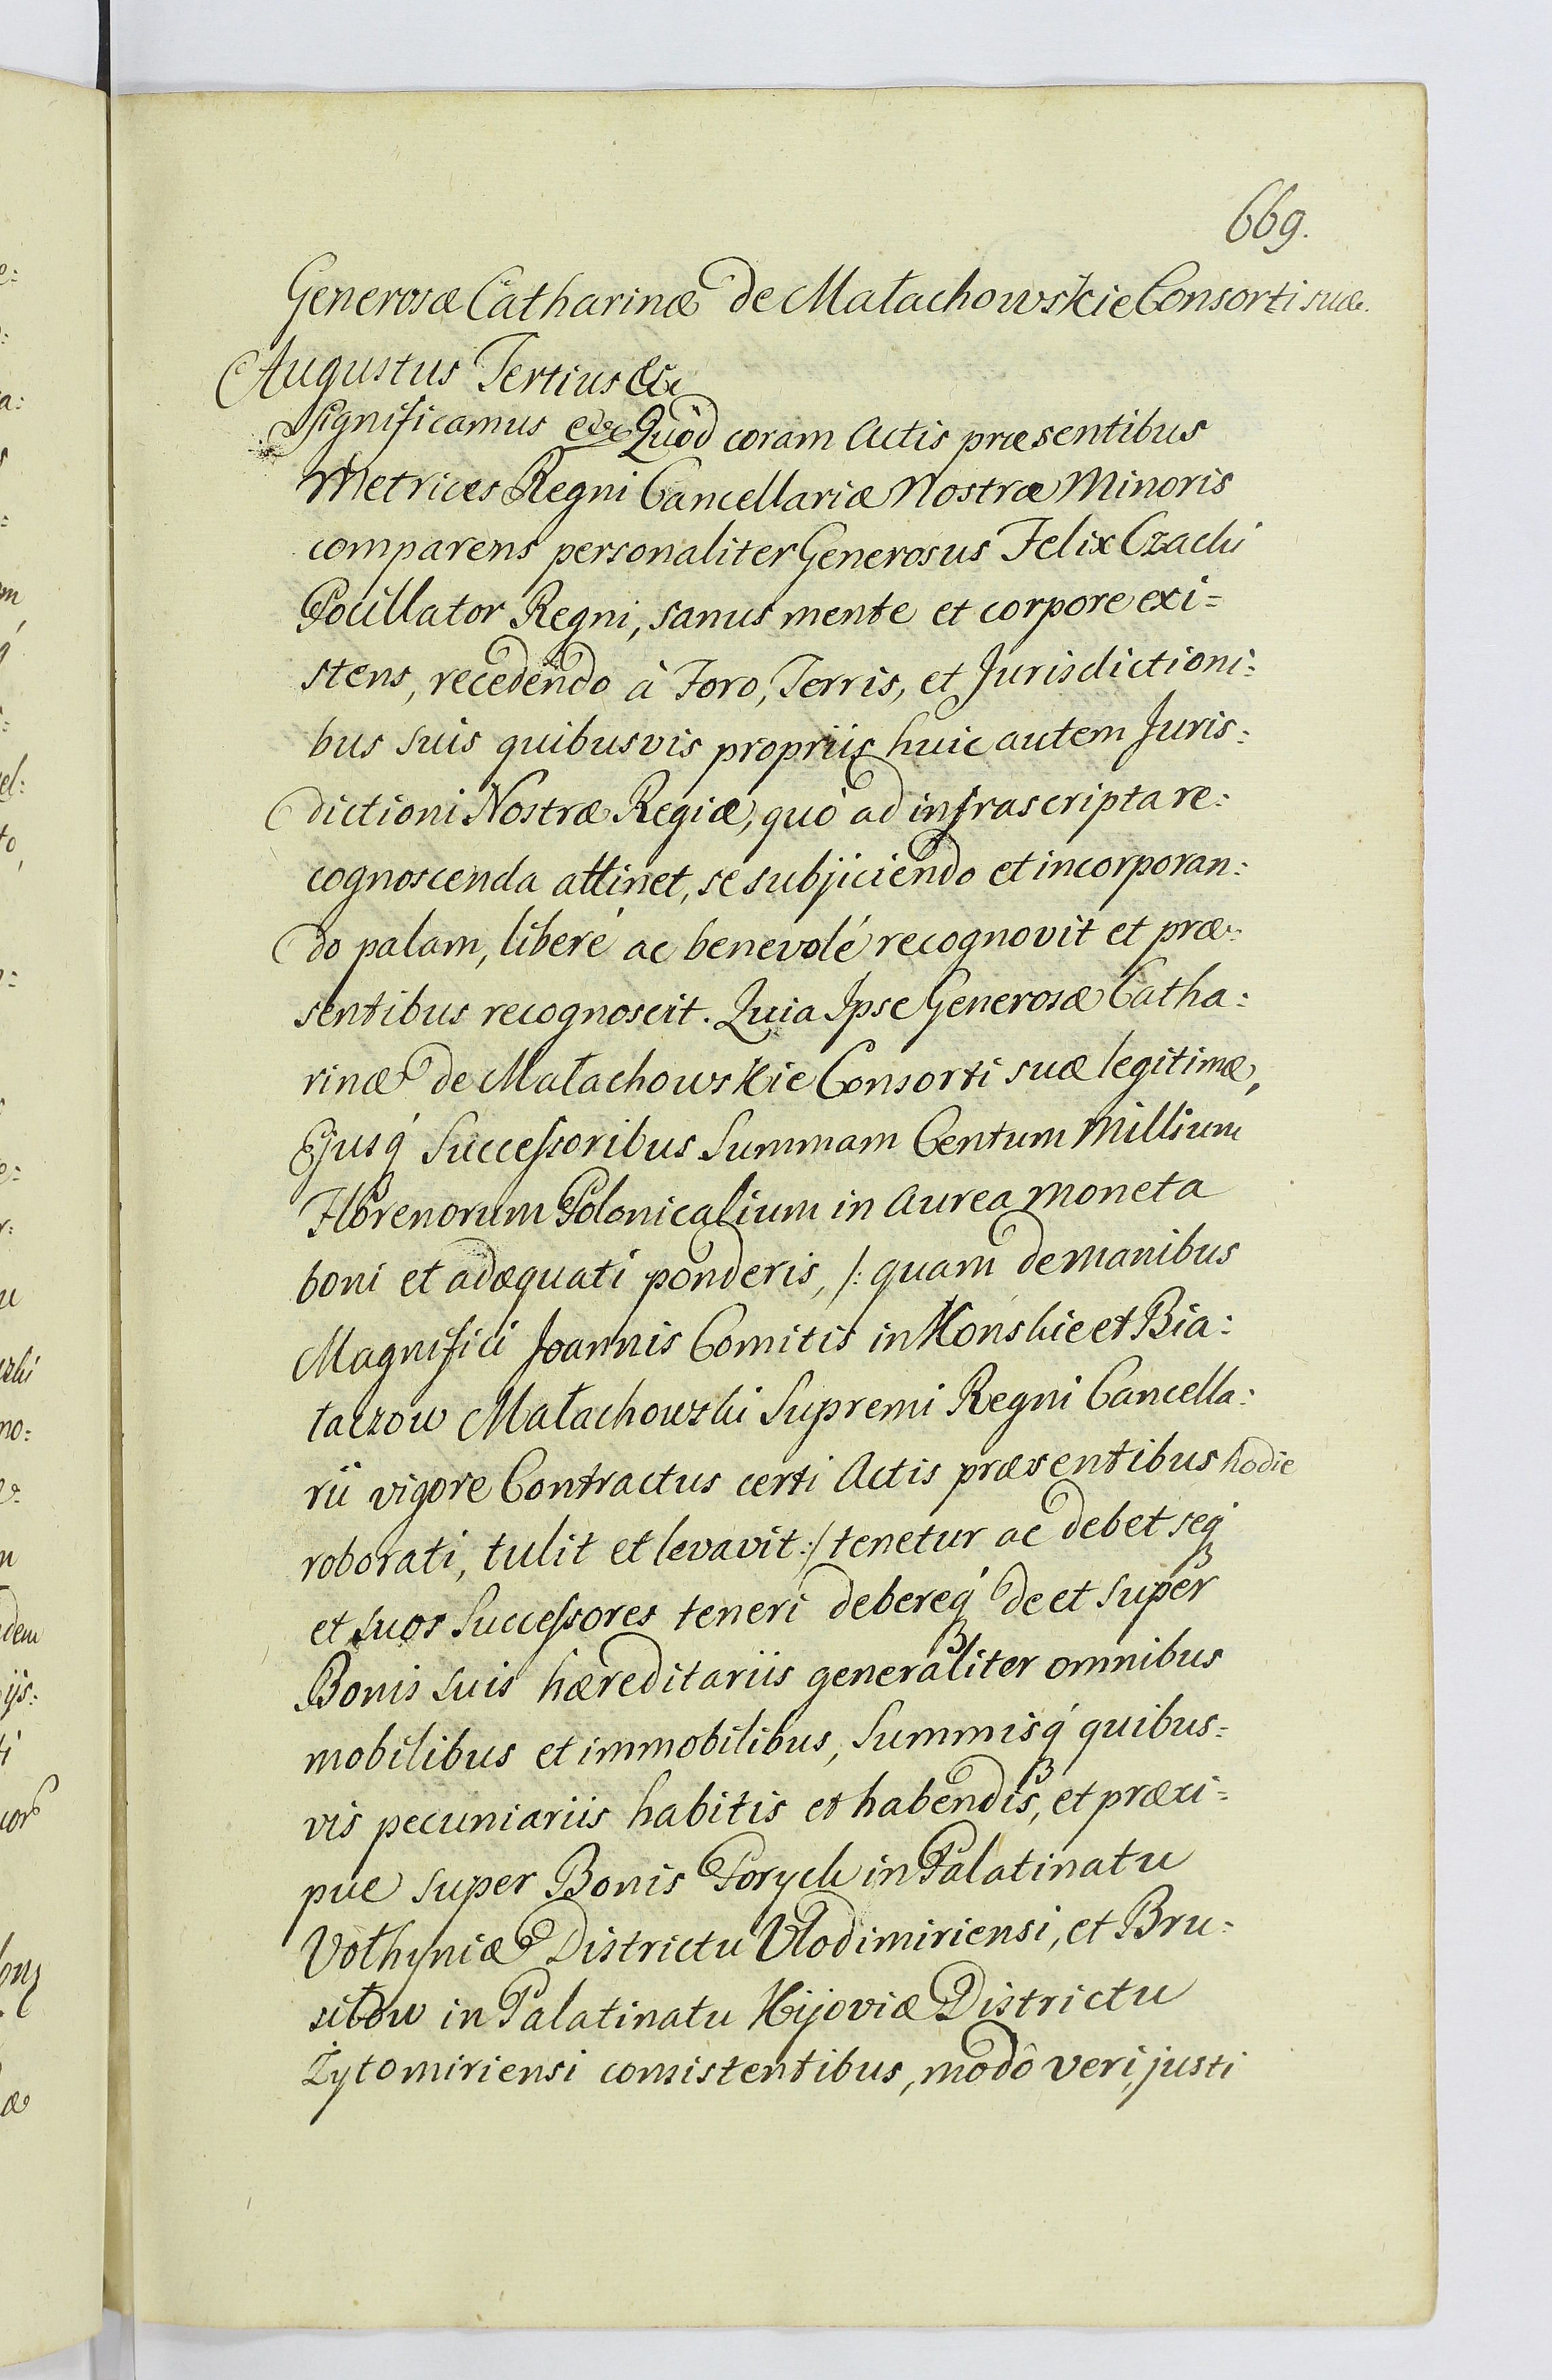 669.
Generosæ Catharinæ de Małachowskie Consorti suæ.
Augustus Tertius &c
Significamus &c Quòd coram Actis præsentibus
Metrices Regni Cancellariæ Nostræ Minoris
comparens personaliter Generosus Felix Czacki
Pocillator Regni, sanus mente et corpore exi=
stens, recedendo à Foro, Terris, et Jurisdictioni:
bus suis quibusvis propriis huic autem Juris:
dictioni Nostræ Regiæ, quò ad infrascripta re:
cognoscenda attinet, se subjiciendo et incorporan:
do palam, liberé ac benevolé recognovit et præ:
sentibus recognoscit. Quia Ipse Generosæ Catha:
rinæ de Małachowskie Consorti suæ legitimæ,
Ejusq́ Successoribus Summam Centum Millium
Florenorum Polonicalium in aurea moneta
boni et adæquati ponderis, /: quam de manibus
Magnifici Joannis Comitis in Konskie et Bia:
łaczow Małachowski Supremi Regni Cancella:
rii vigore Contractus certi Actis præsentibus hodie
roborati, tulit et levavit :/ tenetur ac debet seq́
et suos Successores teneri debereq́ de et super
Bonis suis hæreditariis generaliter omnibus
mobilibus et immobilibus, Summisq́ quibus=
vis pecuniariis habitis et habendis, et præci=
pue super Bonis Poryck in Palatinatu
Vołhyniæ Districtu Vlodimiriensi, et Bru=
siłow in Palatinatu Kijoviæ Districtu
Żytomiriensi consistentibus, modò veri, justi